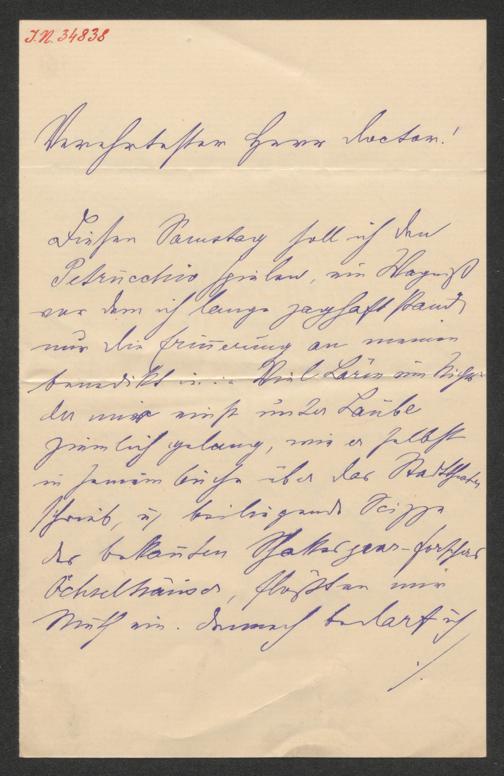 J.N. 34838
Verehrtester Herr Doctor!
Diesen Samstag soll ich den
Petrucchio spielen, ein Wagniß
vor dem ich lange zaghaft stand
nur die Erinnerung an meinen
benedikt in ... Viel Lärm um Nichts
der mir einst unter Laube
ziemlich gelang, wie er selbst
in seinem buche über das Stadttheater
schrieb, u beiliegende Scizze
des bekannten Shakespeare-forschers
Öchselhäuser, flößten mir
Muth ein. Dennoch bedarf ich
./.